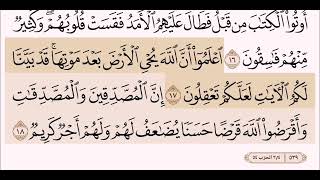 أُوتُوا۟ ٱلْكِتَـٰبَ مِن قَبْلُ فَطَالَ عَلَيْهِمُ ٱلْأَمَدُ فَقَسَتْ قُلُوبُهُمْ ۖ وَكَثِيرٌ
مِّنْهُمْ فَـٰسِقُونَ ١٦ ٱعْلَمُوٓا۟ أَنَّ ٱللَّهَ يُحْىِ ٱلْأَرْضَ بَعْدَ مَوْتِهَا ۚ قَدْ بَيَّنَّا
لَكُمُ ٱلْـَٔايَـٰتِ لَعَلَّكُمْ تَعْقِلُونَ ١٧ إِنَّ ٱلْمُصَّدِّقِينَ وَٱلْمُصَّدِّقَـٰتِ
وَأَقْرَضُوا۟ ٱللَّهَ قَرْضًا حَسَنًا يُضَـٰعَفُ لَهُمْ وَلَهُمْ أَجْرٌ كَرِيمٌ ١٨
٥٣٩ ٣/٤ الحزب ٥٤